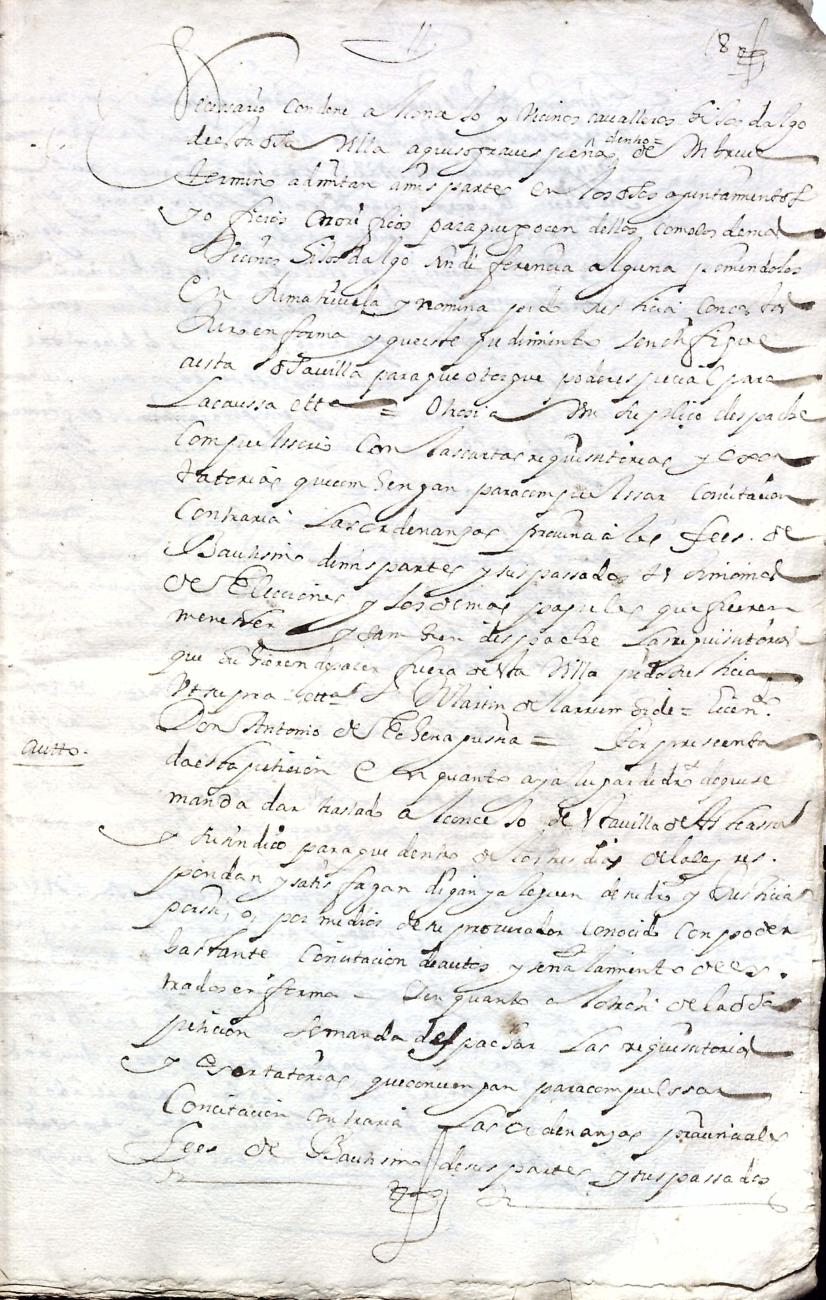 18
necesario condene al conçeJo y vecinos cavalleros hiJos dalgo
de esta dha Villa a graves penas dentro= de Un breve
termino admitan a mis partes en los dhos ayuntamientos
y oficios onorificos para que goçen dellos como los demas
Vecinos hiJos dalgo sin diferencia alguna poniendolos
en Su matricula y nomina pido Justicia con costas
Juro en forma y que este pedimiento se notifique
a esta dha villa para que otorgue poder especial para
la caussa etta = Otrosi a Vm suplico despache
compulssorio con las cartas requisitorias y exor
tatorias que combengan para compulssar con citacion
contraria las ordenanzas provinciales fees de
Bautismo de mis partes y sus passados testimonios
de Elecciones y los demas papeles que fueren
menester y tambien despache las requisitorias
que se hubieren de hacer fuera de esta Villa pido Justicia
Ut supra etta Martin de Larrumbide = Licendo
Don Antonio de Echenagusia = Por presenta
autto.
da esta peticion en quanto a ya lugar de dro dequese
manda dar traslado al conceJo de Vta villa de
y su sindico para que dentro de los tres dias de la ley res
pondan y satisfagan digan y aleguen de su dro y Justicia
por si, o, por medios de su procurador conocido con poder
bastante con citacion de autos y señalamiento de es
trados en forma = Y en quanto al otrosi de la dha
peticion se manda despachar las requisitorias
y esortatorias que convengan para compulssar
con citacion contraria las ordenanzas provinciales
fees de Bautismo de sus partes y sus passados